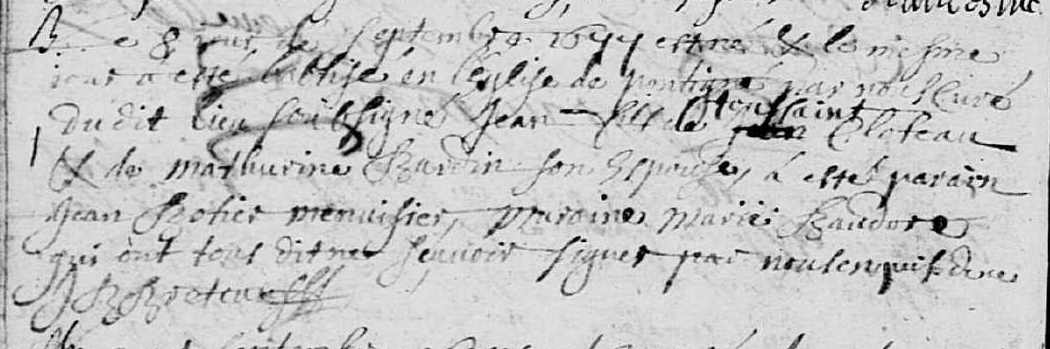 Le 8 jour de septembre 1677 est né & le mesme
jour a esté baptisé en l'eglise de pontigné par nous Curé
Dudit lieu soubsigné Jean fils de toussaint Cloteau
& de mathurine Bardin son Espouse, a esté parain
Jean menuisier, maraine marie Baudore
qui ont tous dit ne sçavoir signer par nous enquis